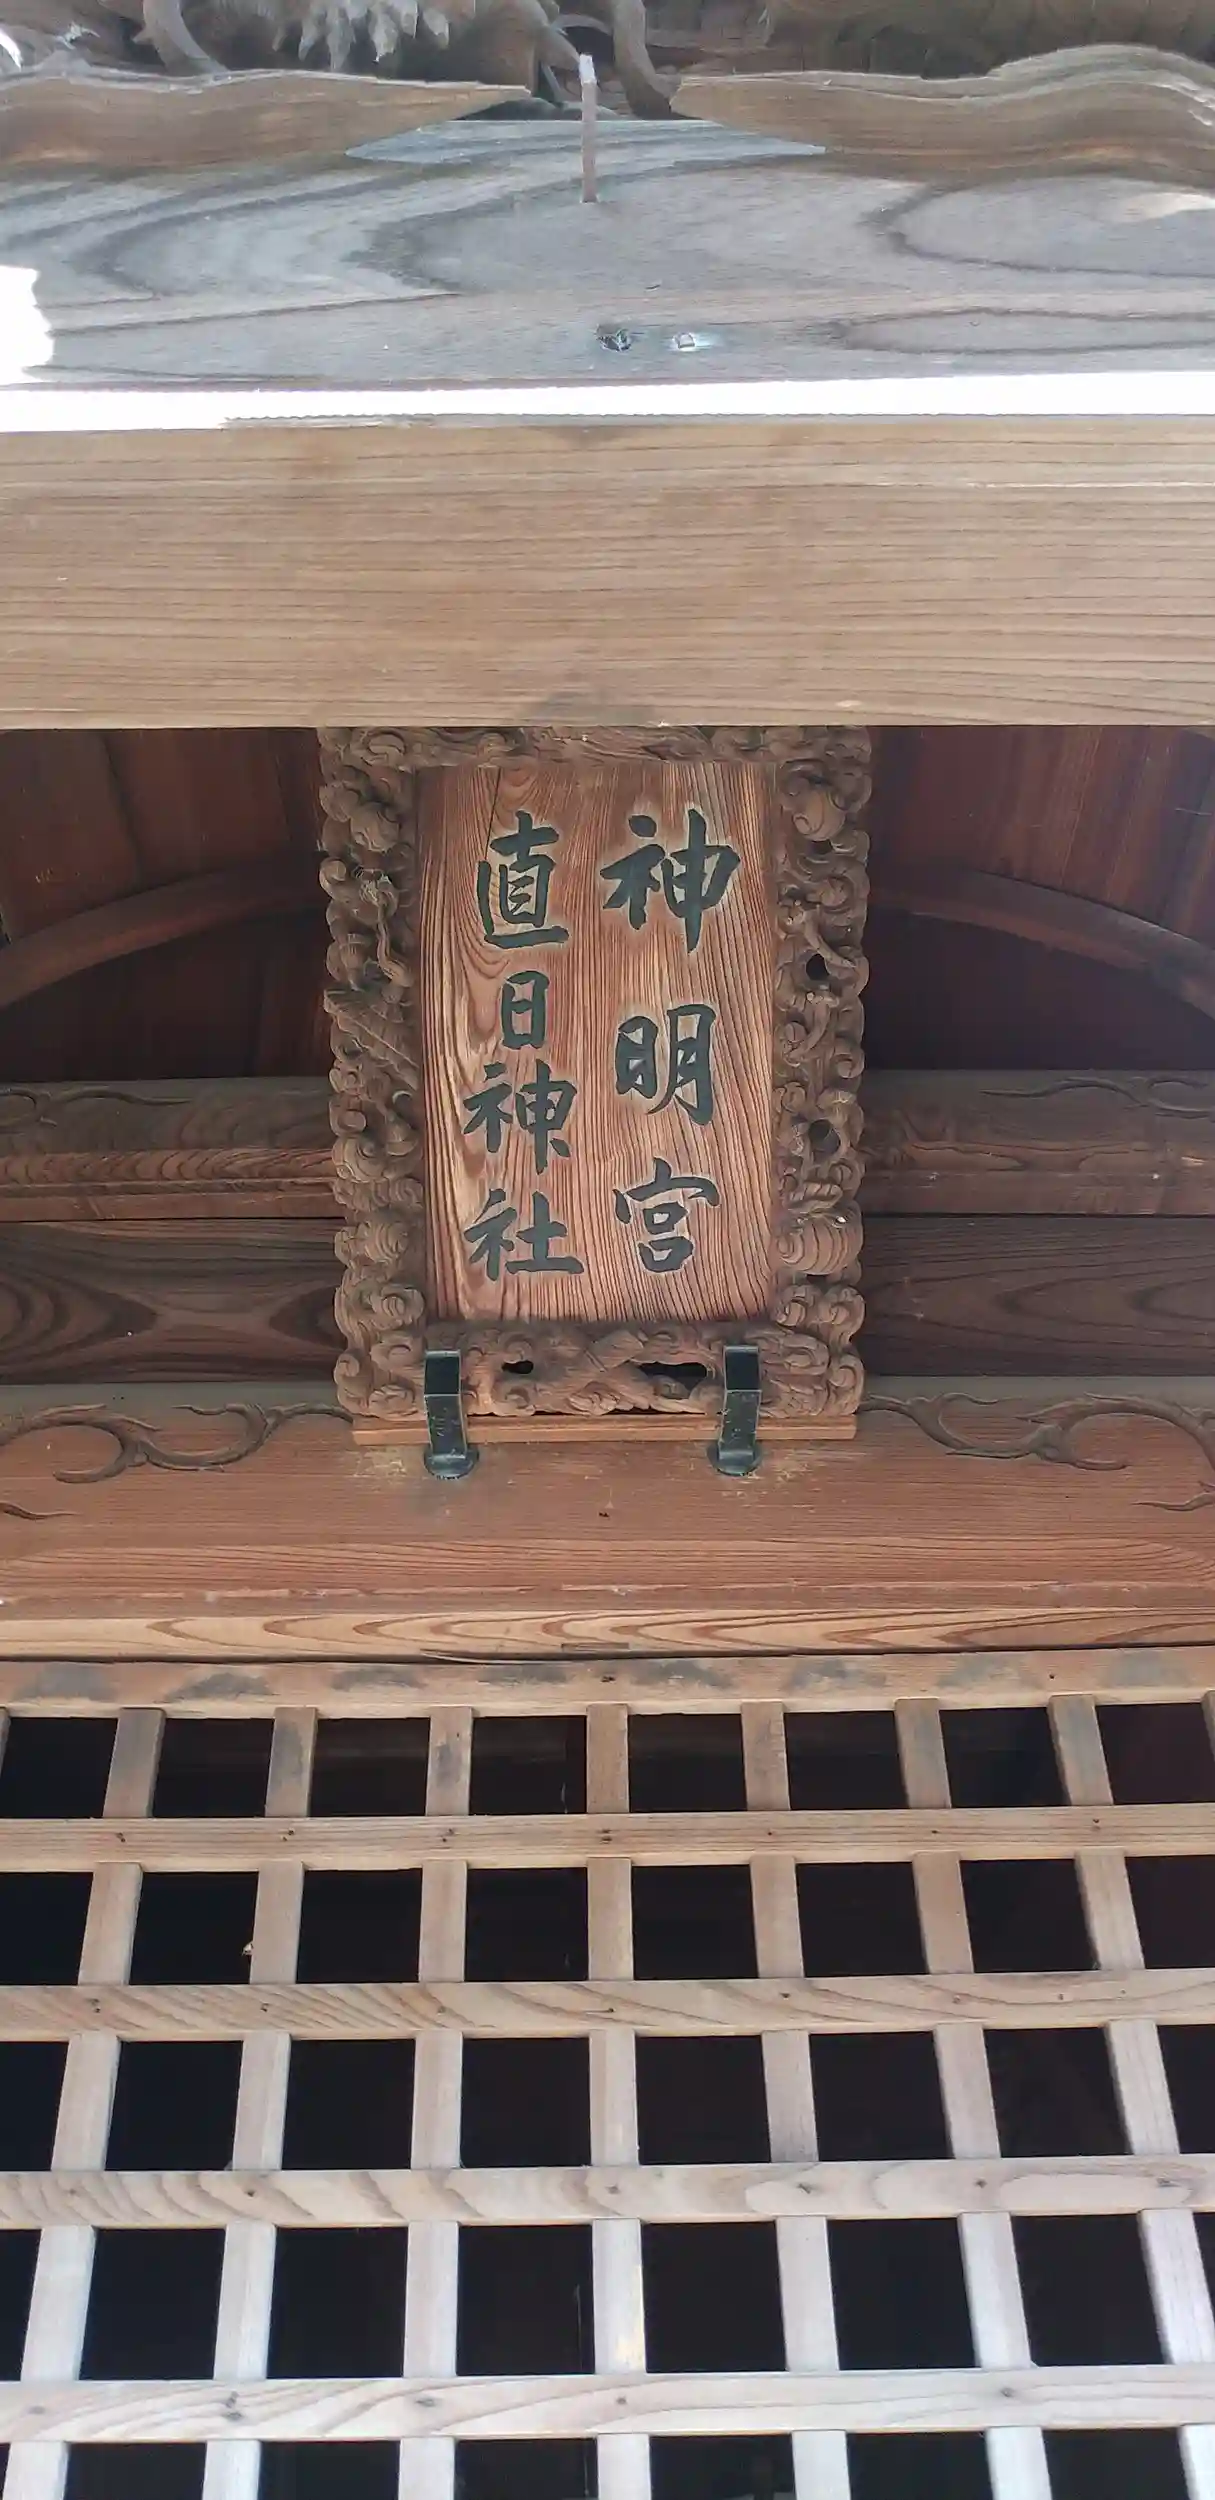 神明宮
直日神社